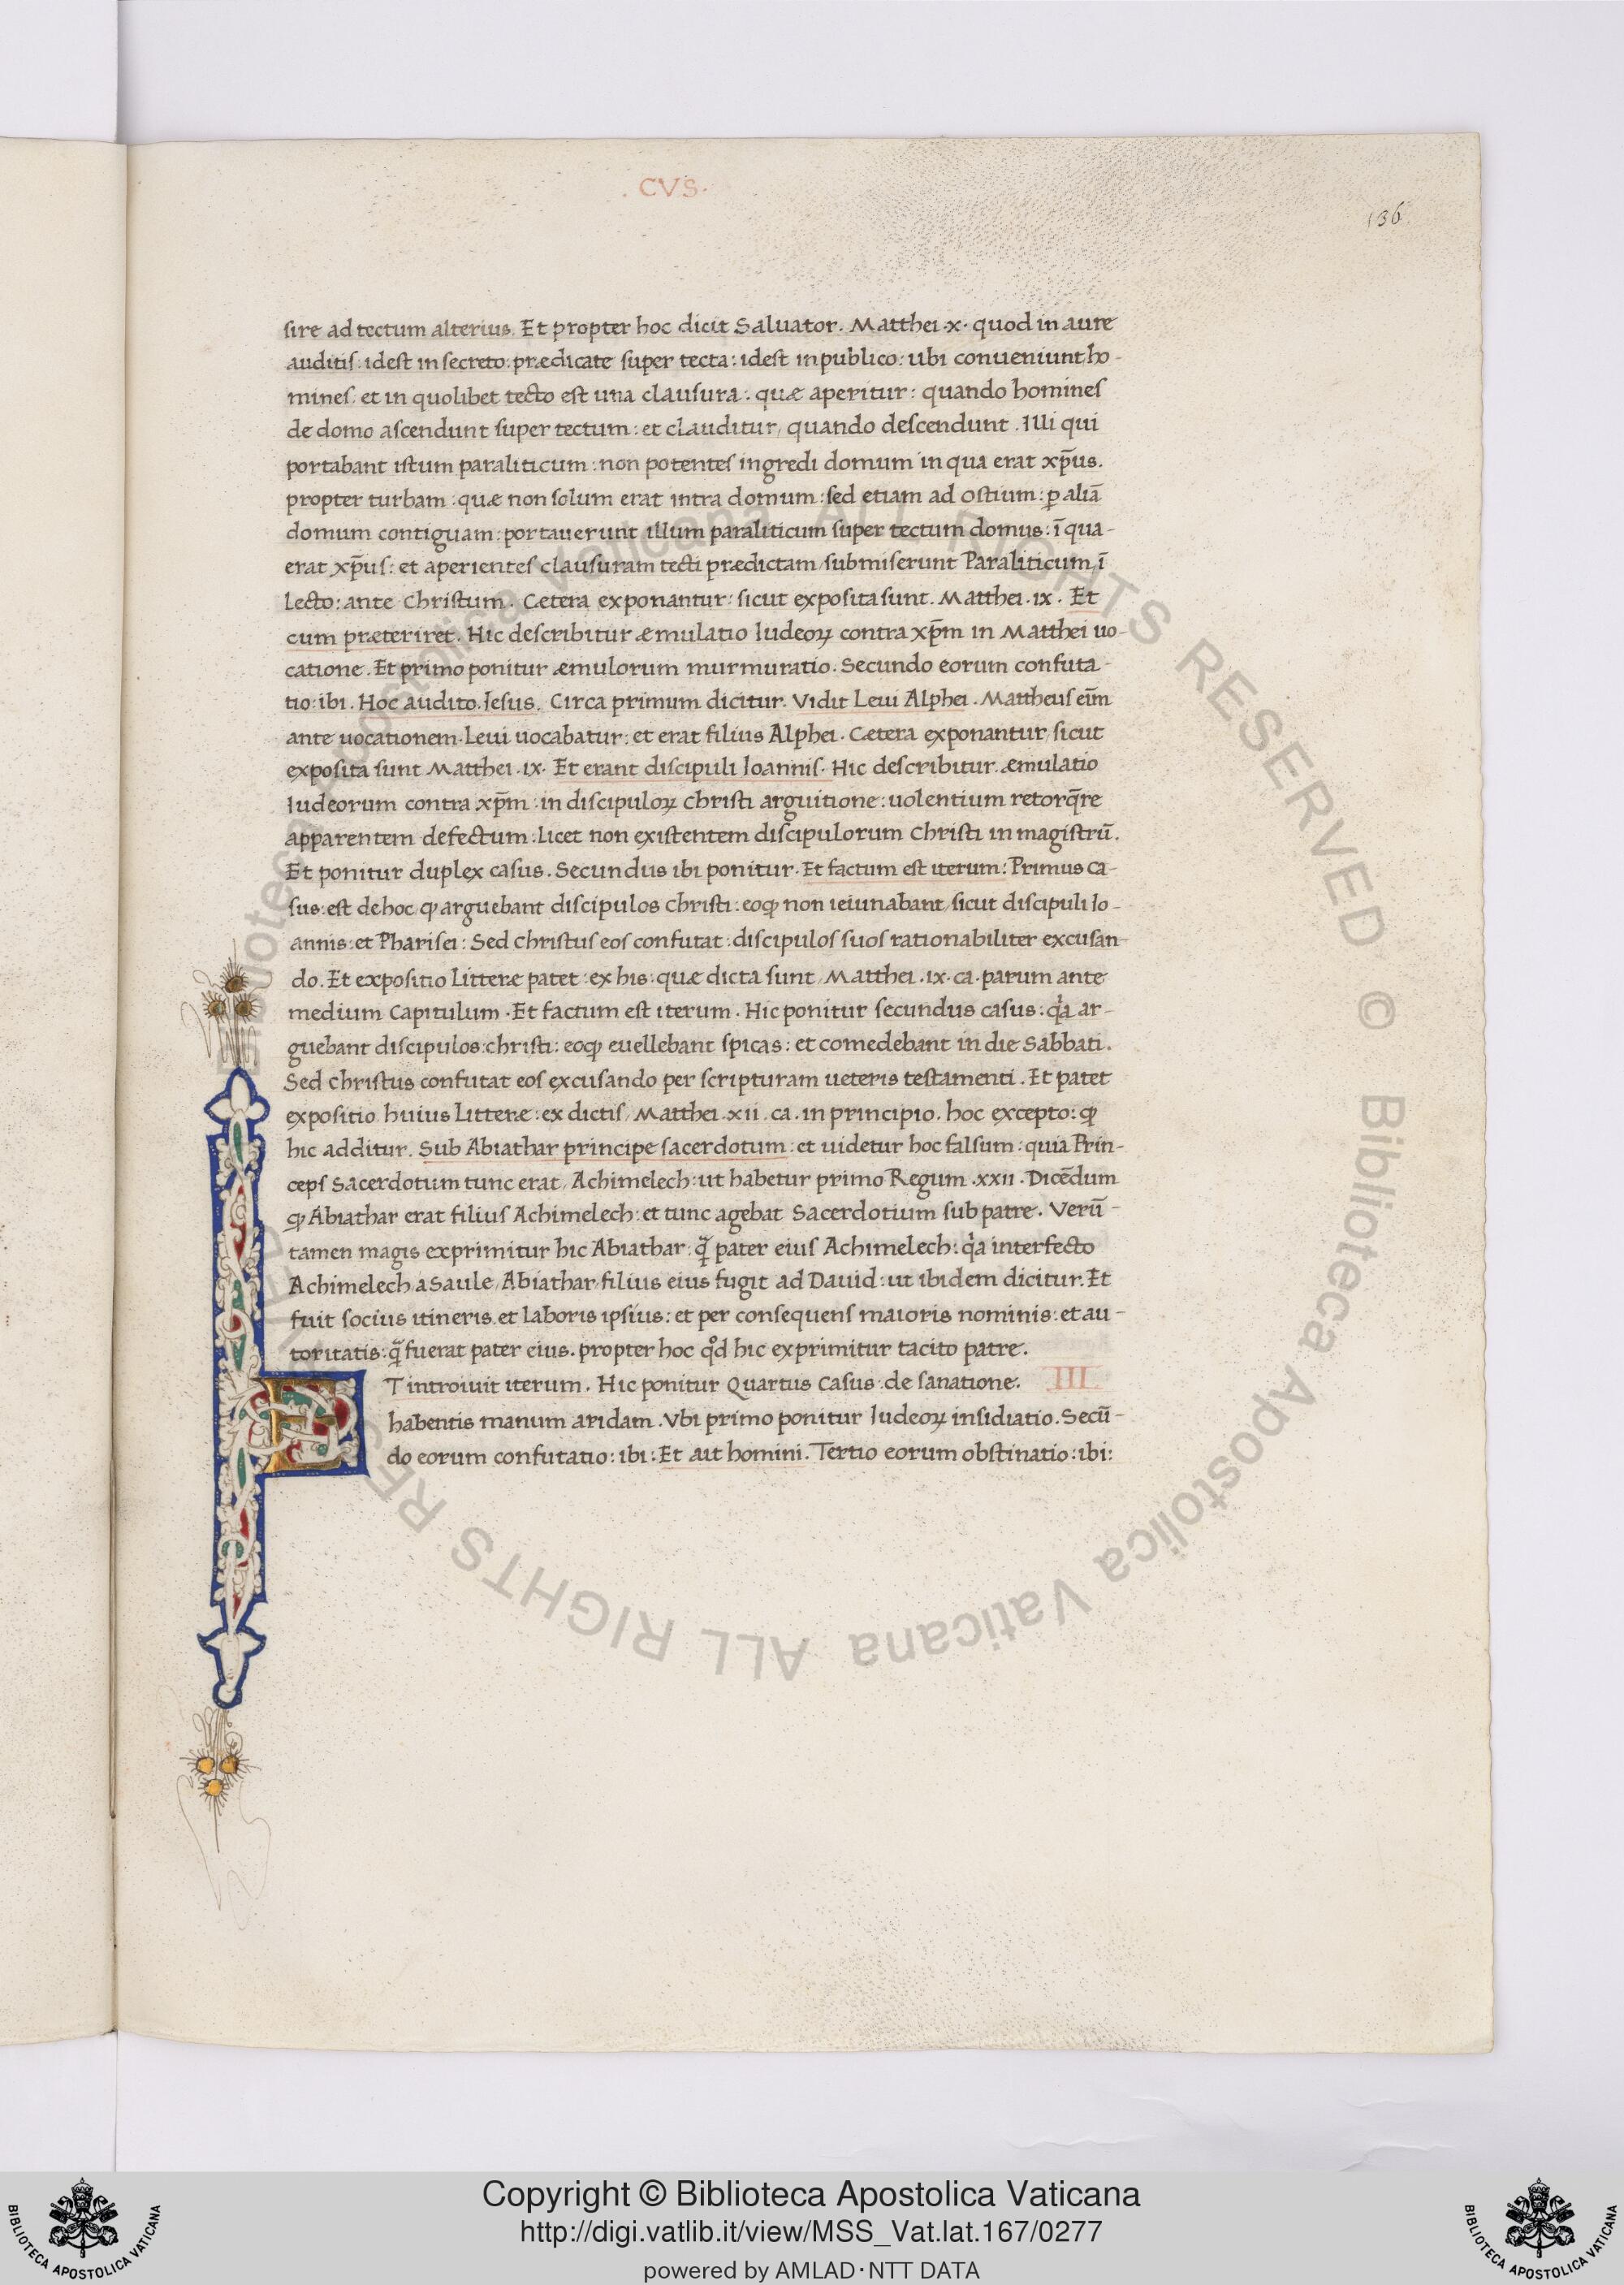 . CVS.
136
sire ad tectum alterius. Et propter hoc dicit Saluator. Matthei .x. quod in aure
auditis: idest in secreto: prædicate super tecta: idest in publico: ubi conueniunt ho-
mines. et in quolibet tecto est una clausura: quæ aperitur: quando homines
de domo ascendunt super tectum: et clauditur, quando descendunt. Illi qui
portabant istum paraliticum: non potentes ingredi domum in qua erat xp̄us.
propter turbam: quæ non solum erat intra domum: sed etiam ad ostium: ꝑ aliā
domum contiguam: portauerunt illum paraliticum super tectum domus: ī qua-
erat xp̄us: et aperientes clausuram tecti prædictam, submiserunt Paraliticum, ī
lecto: ante Christum. Cætera exponantur: sicut exposita sunt. Matthei .ix. Et
cum præteriret. Hic describitur æmulatio Iudeoꝝ contra xp̄m in Matthei uo-
catione. Et primo ponitur æmulorum murmuratio. Secundo eorum confuta-
tio: ibi. Hoc audito. Iesus. Circa primum dicitur. Vidit Leui Alphei. Mattheus eīm
ante uocationem. Leui uocabatur: et erat filius Alphei. Cætera exponantur, sicut
exposita sunt Matthei .ix. Et erant discipuli Ioannis. Hic describitur æmulatio
Iudeorum contra xp̄m: in discipuloꝝ Christi arguitione: uolentium retorq̄re
apparentem defectum: licet non existentem discipulorum Christi in magistrū.
Et ponitur duplex casus. Secundus ibi ponitur. Et factum est iterum: Primus ca-
sus: est de hoc, ꝙ arguebant discipulos Christi: eoꝙ non ieiunabant, sicut discipuli Io-
annis: et Pharisei: Sed Christus eos confutat: discipulos suos rationabiliter excusan-
do. Et expositio Litteræ patet: ex his: quæ dicta sunt, Matthei .ix. ca. parum ante
medium Capitulum. Et factum est iterum. Hic ponitur secundus casus: qͥa ar-
guebant discipulos: christi: eoꝙ euellebant spicas: et comedebant in die Sabbati.
Sed Christus confutat eos excusando per scripturam ueteris testamenti. Et patet
expositio huius Litteræ: ex dictis, Matthei .xii. ca. in principio. hoc excepto: ꝙ
hic additur. Sub Abiathar principe sacerdotum: et uidetur hoc falsum: quia Prin-
ceps Sacerdotum tunc erat, Achimelech: ut habetur primo Regum .xxii. Dicēdum
ꝙ Abiathar erat filius Achimelech: et tunc agebat Sacerdotium sub patre. Verū-
tamen magis exprimitur hic Abiathar: q̃ pater eius Achimelech: qͥa interfecto
Achimelech a Saule, Abiathar, filius eius fugit ad Dauid: ut ibidem dicitur. Et
fuit socius itineris. et laboris ipsius: et per consequens maioris nominis: et au-
toritatis: q̃ fuerat pater eius. propter hoc qͦd hic exprimitur tacito patre.
ET introiuit iterum. Hic ponitur Quartus Casus: de sanatione. III
habentis manum aridam. Vbi primo ponitur Iudeoꝝ insidiatio. Secū-
do eorum confutatio: ibi: Et ait homini. Tertio eorum obstinatio: ibi:
Biblioteca Apostolica Vaticana ALL RIGHTS RESERVED © Biblioteca Apostolica Vaticana ALL RIGHTS RESERVED ©
Copyright © Biblioteca Apostolica Vaticana
http://digi.vatlib.it/view/MSS_Vat.lat.167/0277
powered by AMLAD·NTT DATA
BIBLIOTECA APOSTOLICA VATICANA
BIBLIOTECA APOSTOLICA VATICANA